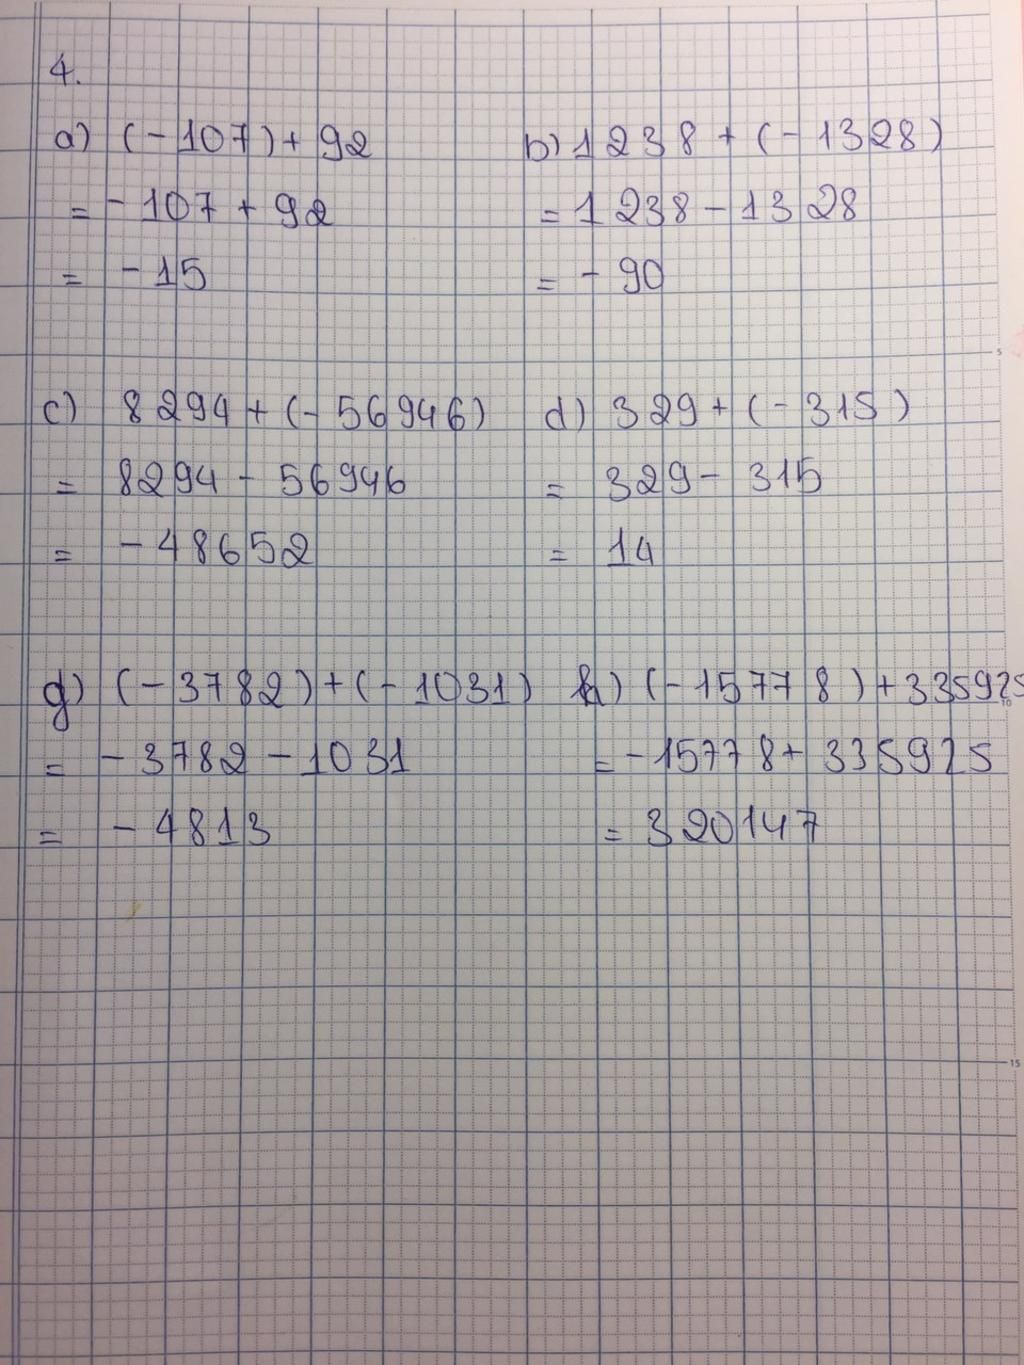 4.
a) (-107)+92
= -107 + 92
= -15
b) 1238 + (-1328)
= 1238 - 1328
= -90
c) 8294 + (-56946)
= 8294 - 56946
= -48652
d) 329 + (-315)
= 329 - 315
= 14
g) (-3782)+(-1031)
= -3782 - 1031
= -4813
h) (-15778)+335925
= -15778 + 335925
= 320147
5
10
15